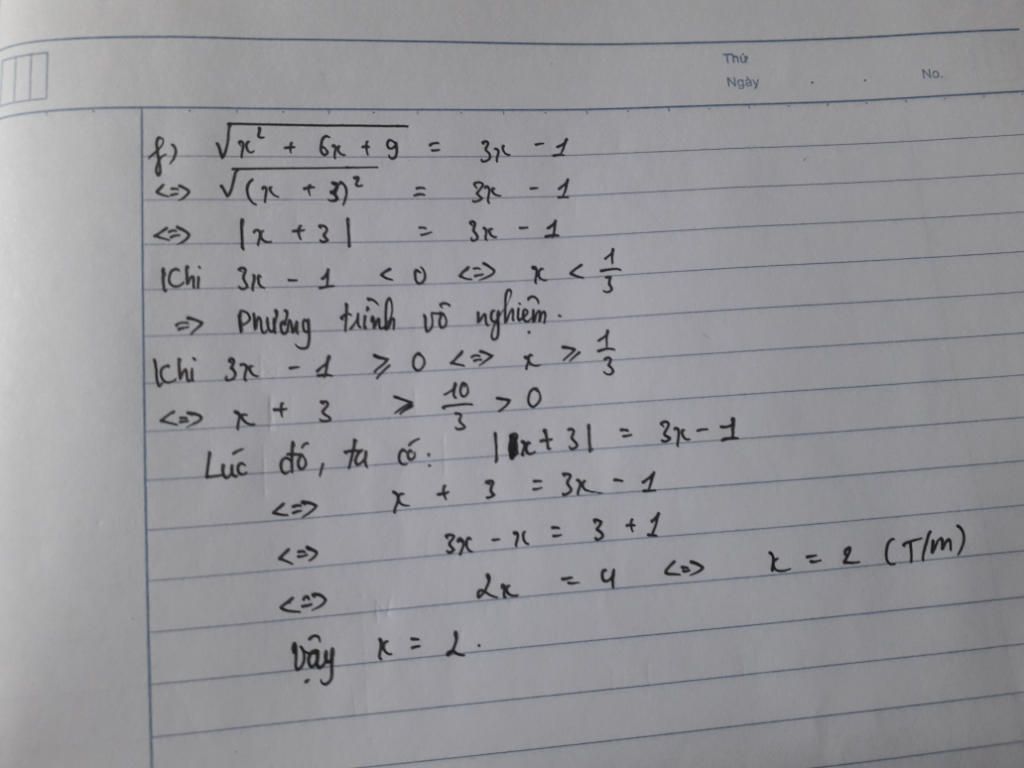 Thứ
Ngày . . No.
f) √(x² + 6x + 9) = 3x - 1
<=> √((x + 3)²) = 3x - 1
<=> |x + 3| = 3x - 1
Khi 3x - 1 < 0 <=> x < 1/3
=> Phương trình vô nghiệm.
Khi 3x - 1 ≥ 0 <=> x ≥ 1/3
<=> x + 3 ≥ 10/3 > 0
Lúc đó, ta có: |x + 3| = 3x - 1
<=> x + 3 = 3x - 1
<=> 3x - x = 3 + 1
<=> 2x = 4 <=> x = 2 (T/m)
Vậy x = 2.